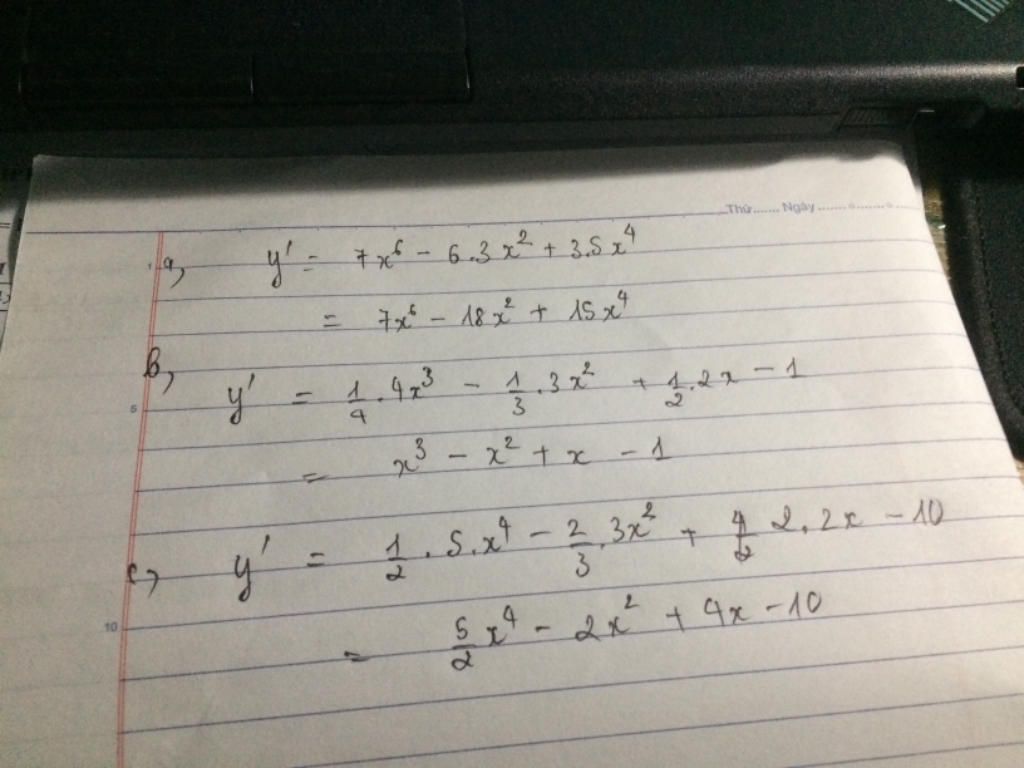 Thứ....... Ngày.................
1 a, y' = 7x⁶ - 6.3x² + 3.5x⁴
= 7x⁶ - 18x² + 15x⁴
b,
5 y' = 1/4 . 4x³ - 1/3 . 3x² + 1/2 . 2x - 1
= x³ - x² + x - 1
c, y' = 1/2 . 5 . x⁴ - 2/3 . 3x² + 4/2 2 . 2x - 10
10 = 5/2 x⁴ - 2x² + 4x - 10